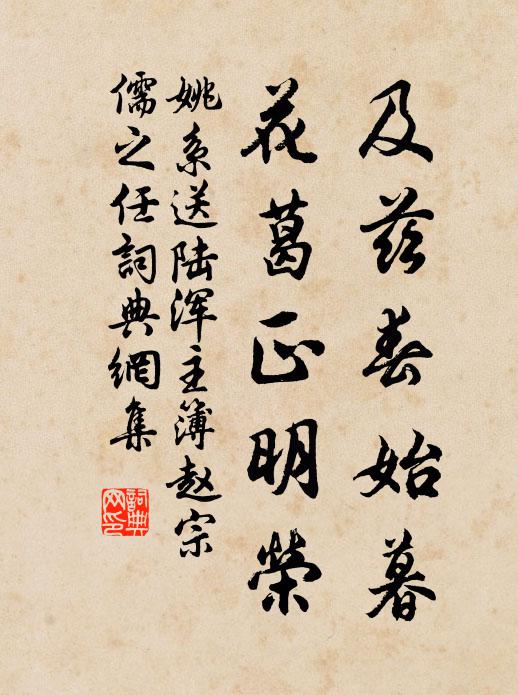 及兹春始暮
花葛正明榮
姚系送陆浑主簿赵宗
儒之任詞典網集
詞典
网印